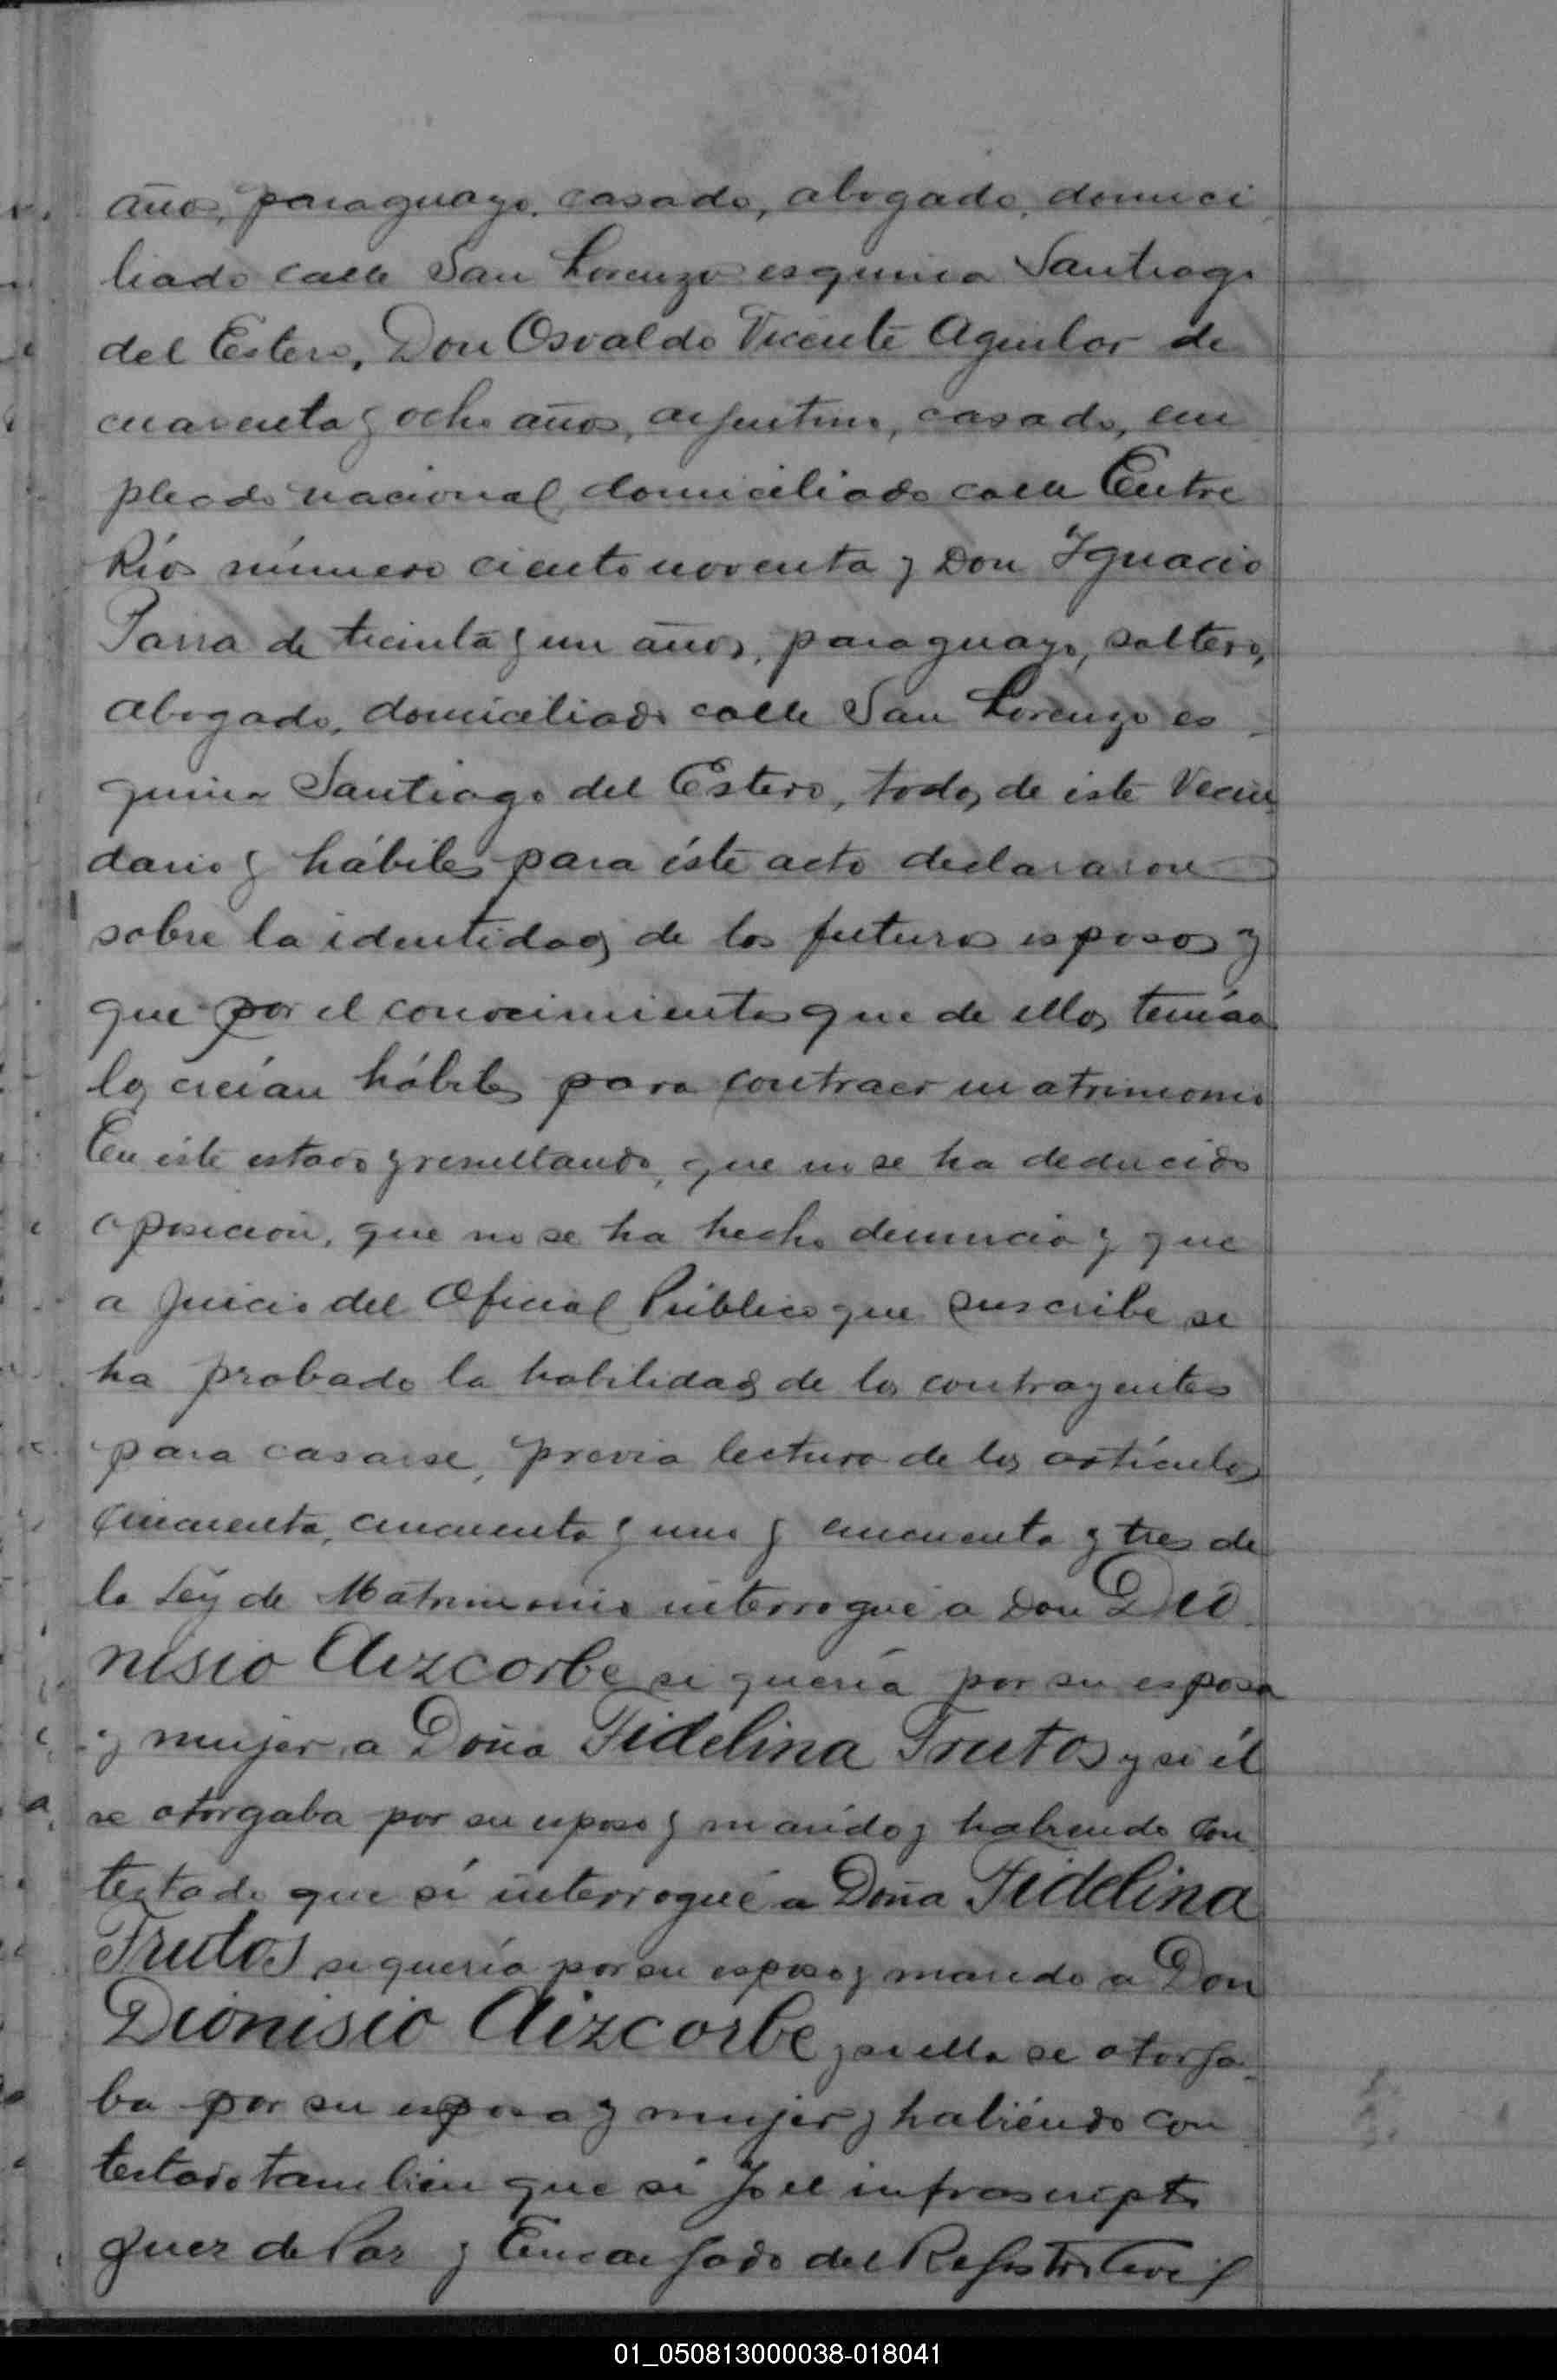 años, paraguayo, casado, abogado, domici
liado calle San Lorenzo esquina Santiago
del Estero, Don Osvaldo Vicente Aguilar de
cuarenta y ocho años, argentino, casado, em
pleado nacional domiciliado calle Entre
Ríos número ciento noventa y Don Ignacio
Parra de treinta y un años, paraguayo, soltero,
abogado, domiciliado calle San Lorenzo es
quina Santiago del Estero, todos de éste Vecin
dario y hábiles para éste acto declararon
sobre la identidad de los futuros esposos y
que por el conocimiento que de ellos tenían
los creían hábiles para contraer matrimonio
En éste estado y resultando, que no se ha deducido
oposición, que no se ha hecho denuncia y que
a juicio del Oficial Público que suscribe se
ha probado la habilidad de los contrayentes
para casarse, previa lectura de los artículos
cincuenta, cincuenta y uno y cincuenta y tres de
la Ley de Matrimonio interrogué a Don Dio
nisio Aizcorbe si quería por su esposa
y mujer a Doña Fidelina Frutos y si él
se otorgaba por su esposo y marido y habiendo con
testado que sí interrogué a Doña Fidelina
Frutos si quería por su esposo y marido a Don
Dionisio Aizcorbe y si ella se otorga
ba por su esposa y mujer y habiendo con
testado tambien que sí Yo el infrascripto
Juez de Paz y Encargado del Registro Civil
01_050813000038-018041